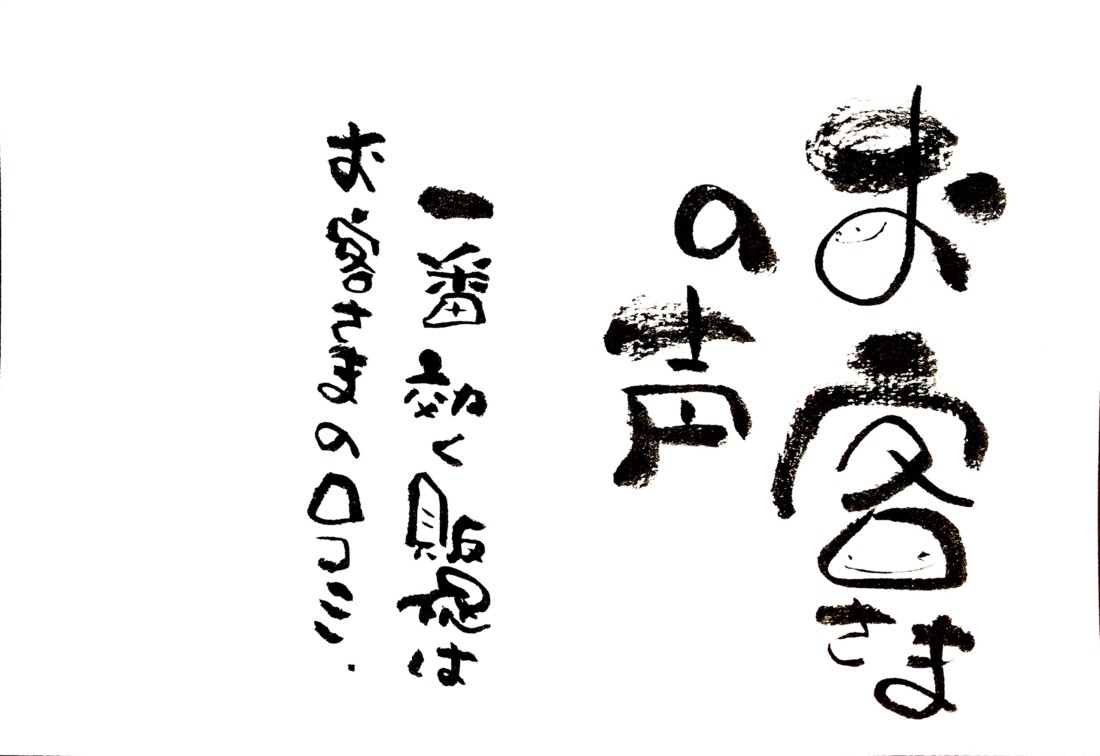 お客さま
の声
一番効く販促は
お客さまの口コミ.